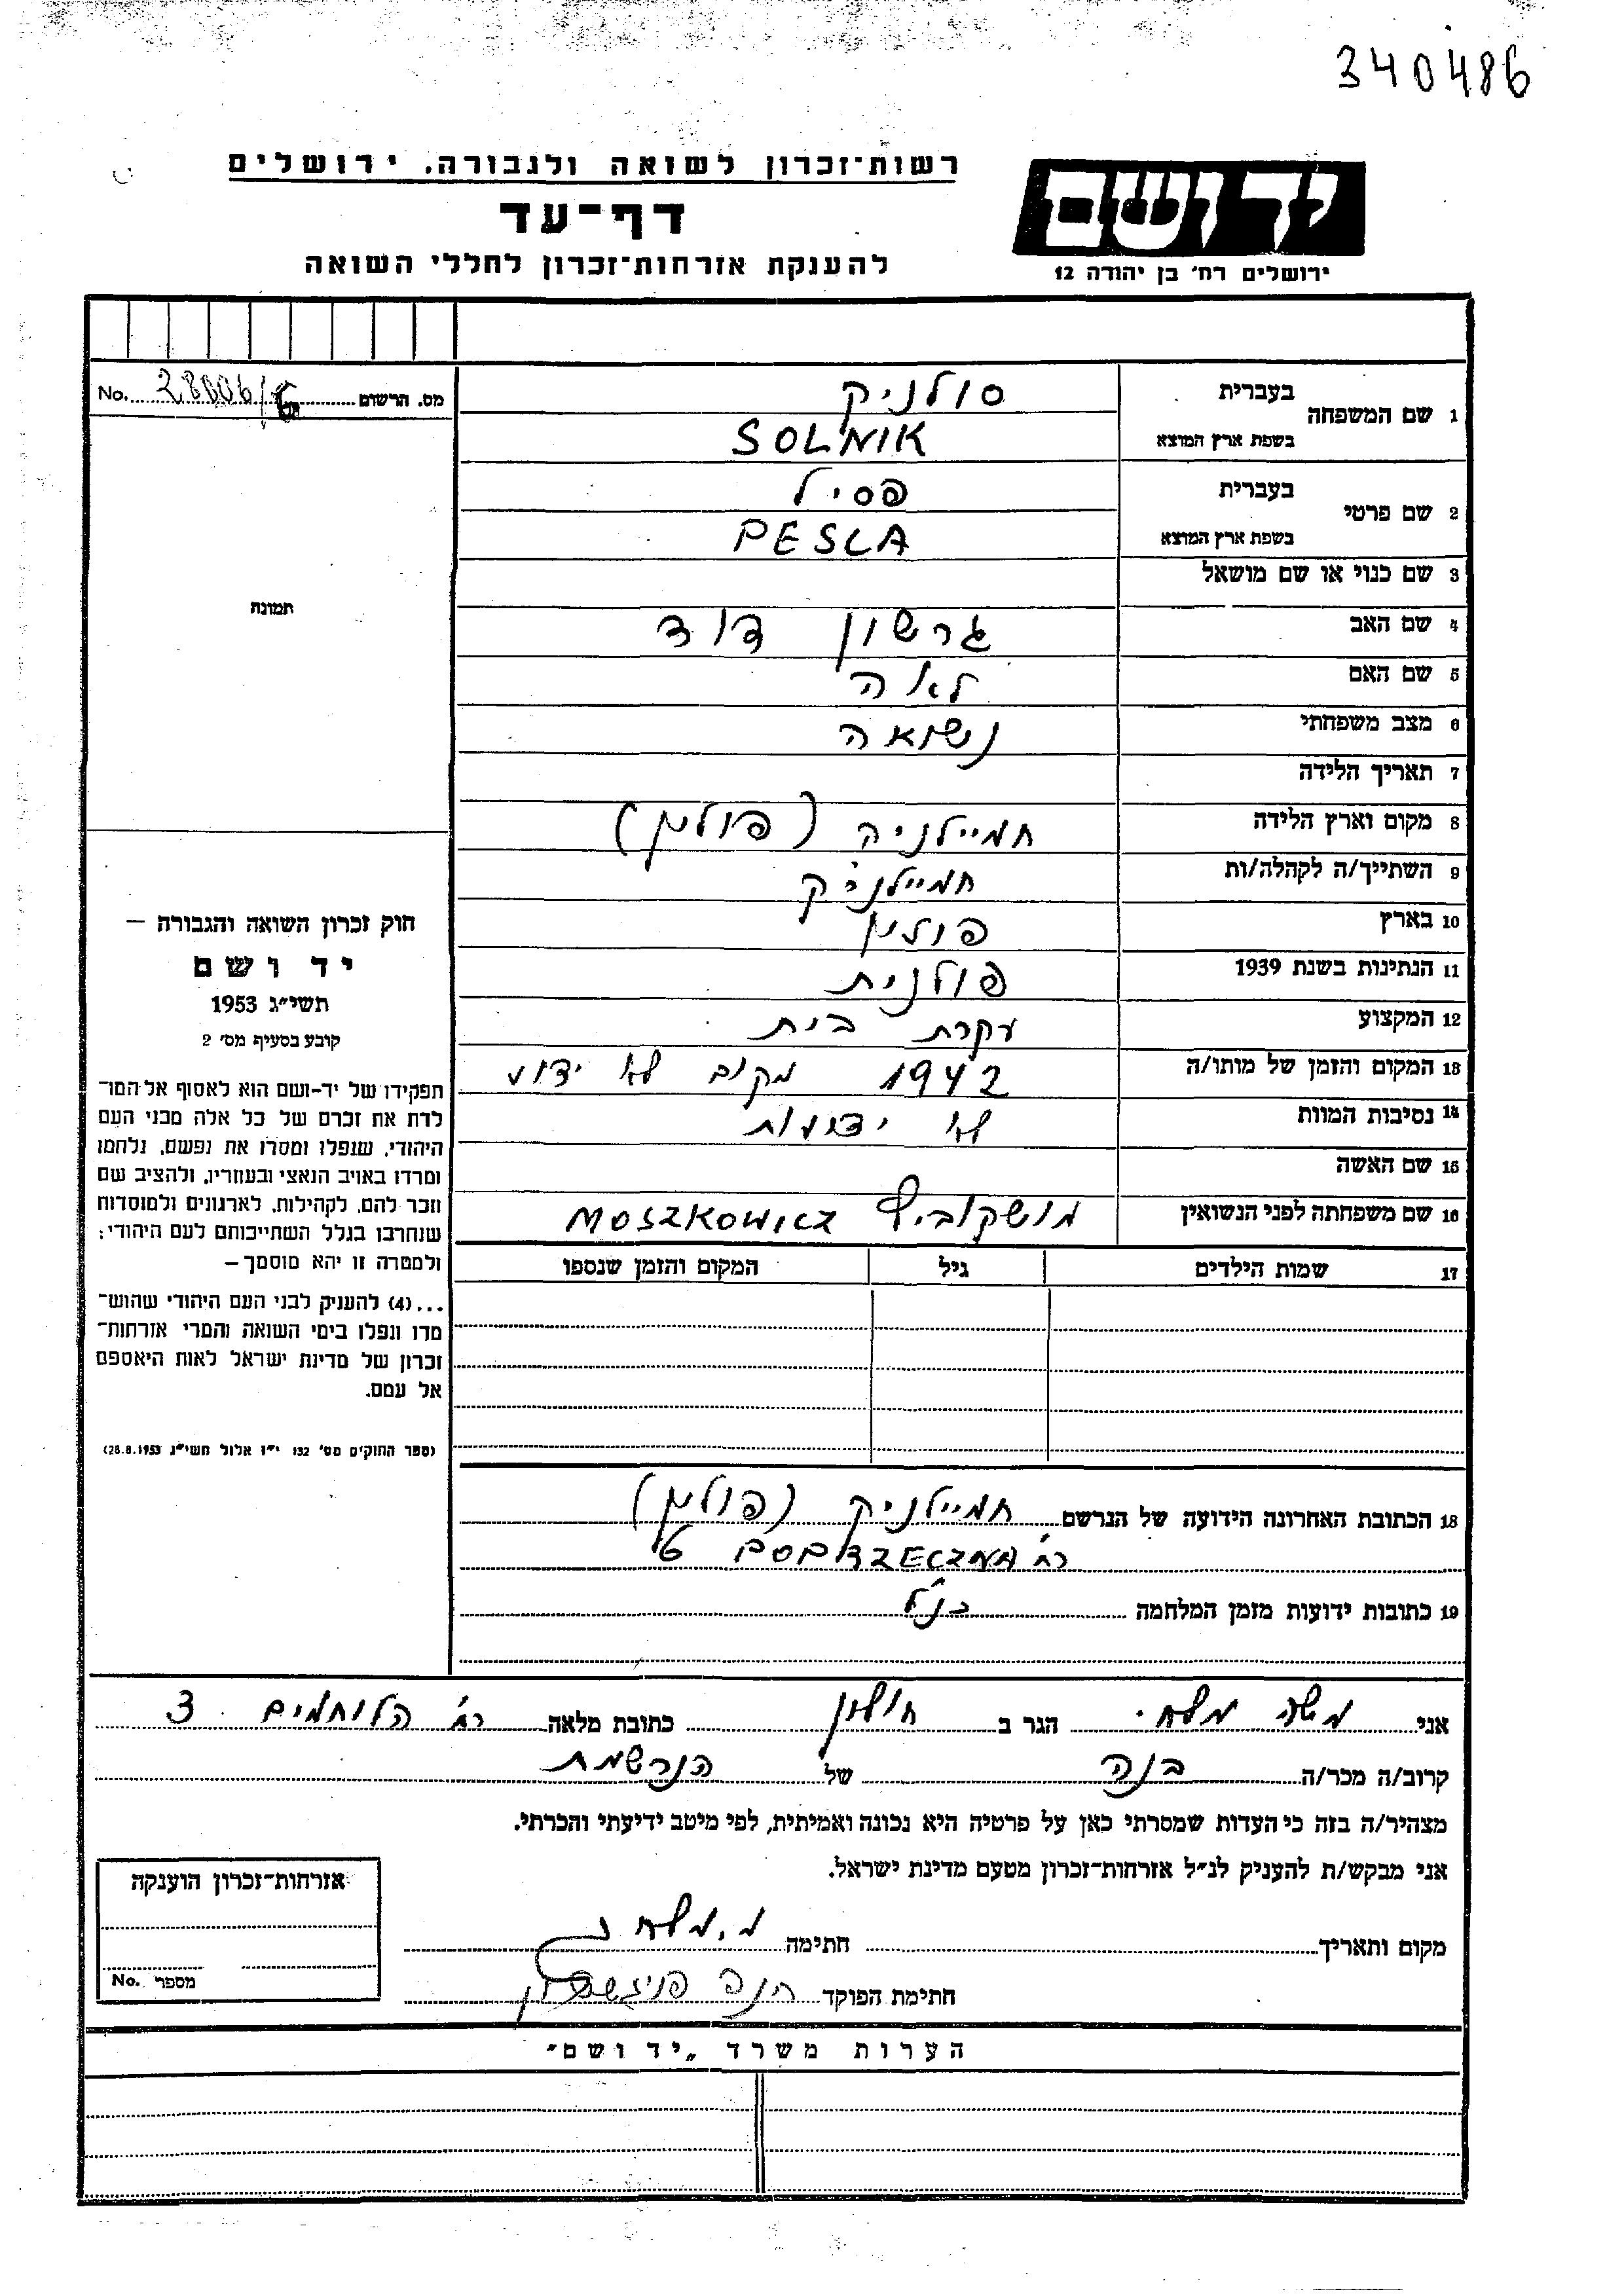 340486
רשות־זכרון לשואה ולגבורה, ירושלים
יד ושם
דף־עד
להענקת אזרחות־זכרון לחללי השואה
ירושלים רח׳ בן יהודה 12
מס. הרשום No. 28006/6
1 שם המשפחה בעברית סולניק
בשפת ארץ המוצא SOLNIK
2 שם פרטי בעברית פסיל
בשפת ארץ המוצא PESLA
3 שם כנוי או שם מושאל
תמונה
4 שם האב גרשון דוד
5 שם האם לאה
6 מצב משפחתי נשואה
7 תאריך הלידה
8 מקום וארץ הלידה חמיילניק (פולין)
9 השתייך/ה לקהלה/ות חמיילניק
10 בארץ פולין
11 הנתינות בשנת 1939 פולנית
12 המקצוע עקרת בית
13 המקום והזמן של מותו/ה 1942 מקום לא ידוע
14 נסיבות המוות לא ידועות
15 שם האשה
16 שם משפחתה לפני הנשואין מושקוביץ MOSZKOWICZ
17 שמות הילדים גיל המקום והזמן שנספו
חוק זכרון השואה והגבורה –
יד ושם
תשי״ג 1953
קובע בסעיף מס׳ 2
תפקידו של יד־ושם הוא לאסוף אל המו־
לדת את זכרם של כל אלה מבני העם
היהודי, שנפלו ומסרו את נפשם, נלחמו
ומרדו באויב הנאצי ובעוזריו, ולהציב שם
וזכר להם, לקהילות, לארגונים ולמוסדות
שנחרבו בגלל השתייכותם לעם היהודי;
ולמטרה זו יהא מוסמך –
...(4) להעניק לבני העם היהודי שהוש־
מדו ונפלו בימי השואה והמרי אזרחות־
זכרון של מדינת ישראל לאות היאספם
אל עמם.
(ספר החוקים מס׳ 132 י״ז אלול תשי״ג 28.8.1953)
18 הכתובת האחרונה הידועה של הנרשם חמיילניק (פולין)
רח׳
19 כתובות ידועות מזמן המלחמה כנ״ל
אני משה מלחי הגר ב חולון כתובת מלאה רח׳ הלוחמים 3
קרוב/ה מכר/ה בנה של הנרשמת
מצהיר/ה בזה כי העדות שמסרתי כאן על פרטיה היא נכונה ואמיתית, לפי מיטב ידיעתי והכרתי.
אני מבקש/ת להעניק לנ״ל אזרחות־זכרון מטעם מדינת ישראל.
מקום ותאריך חתימה מ. מלחי
חתימת הפוקד חנה
אזרחות־זכרון הוענקה
מספר No.
הערות משרד „יד ושם״